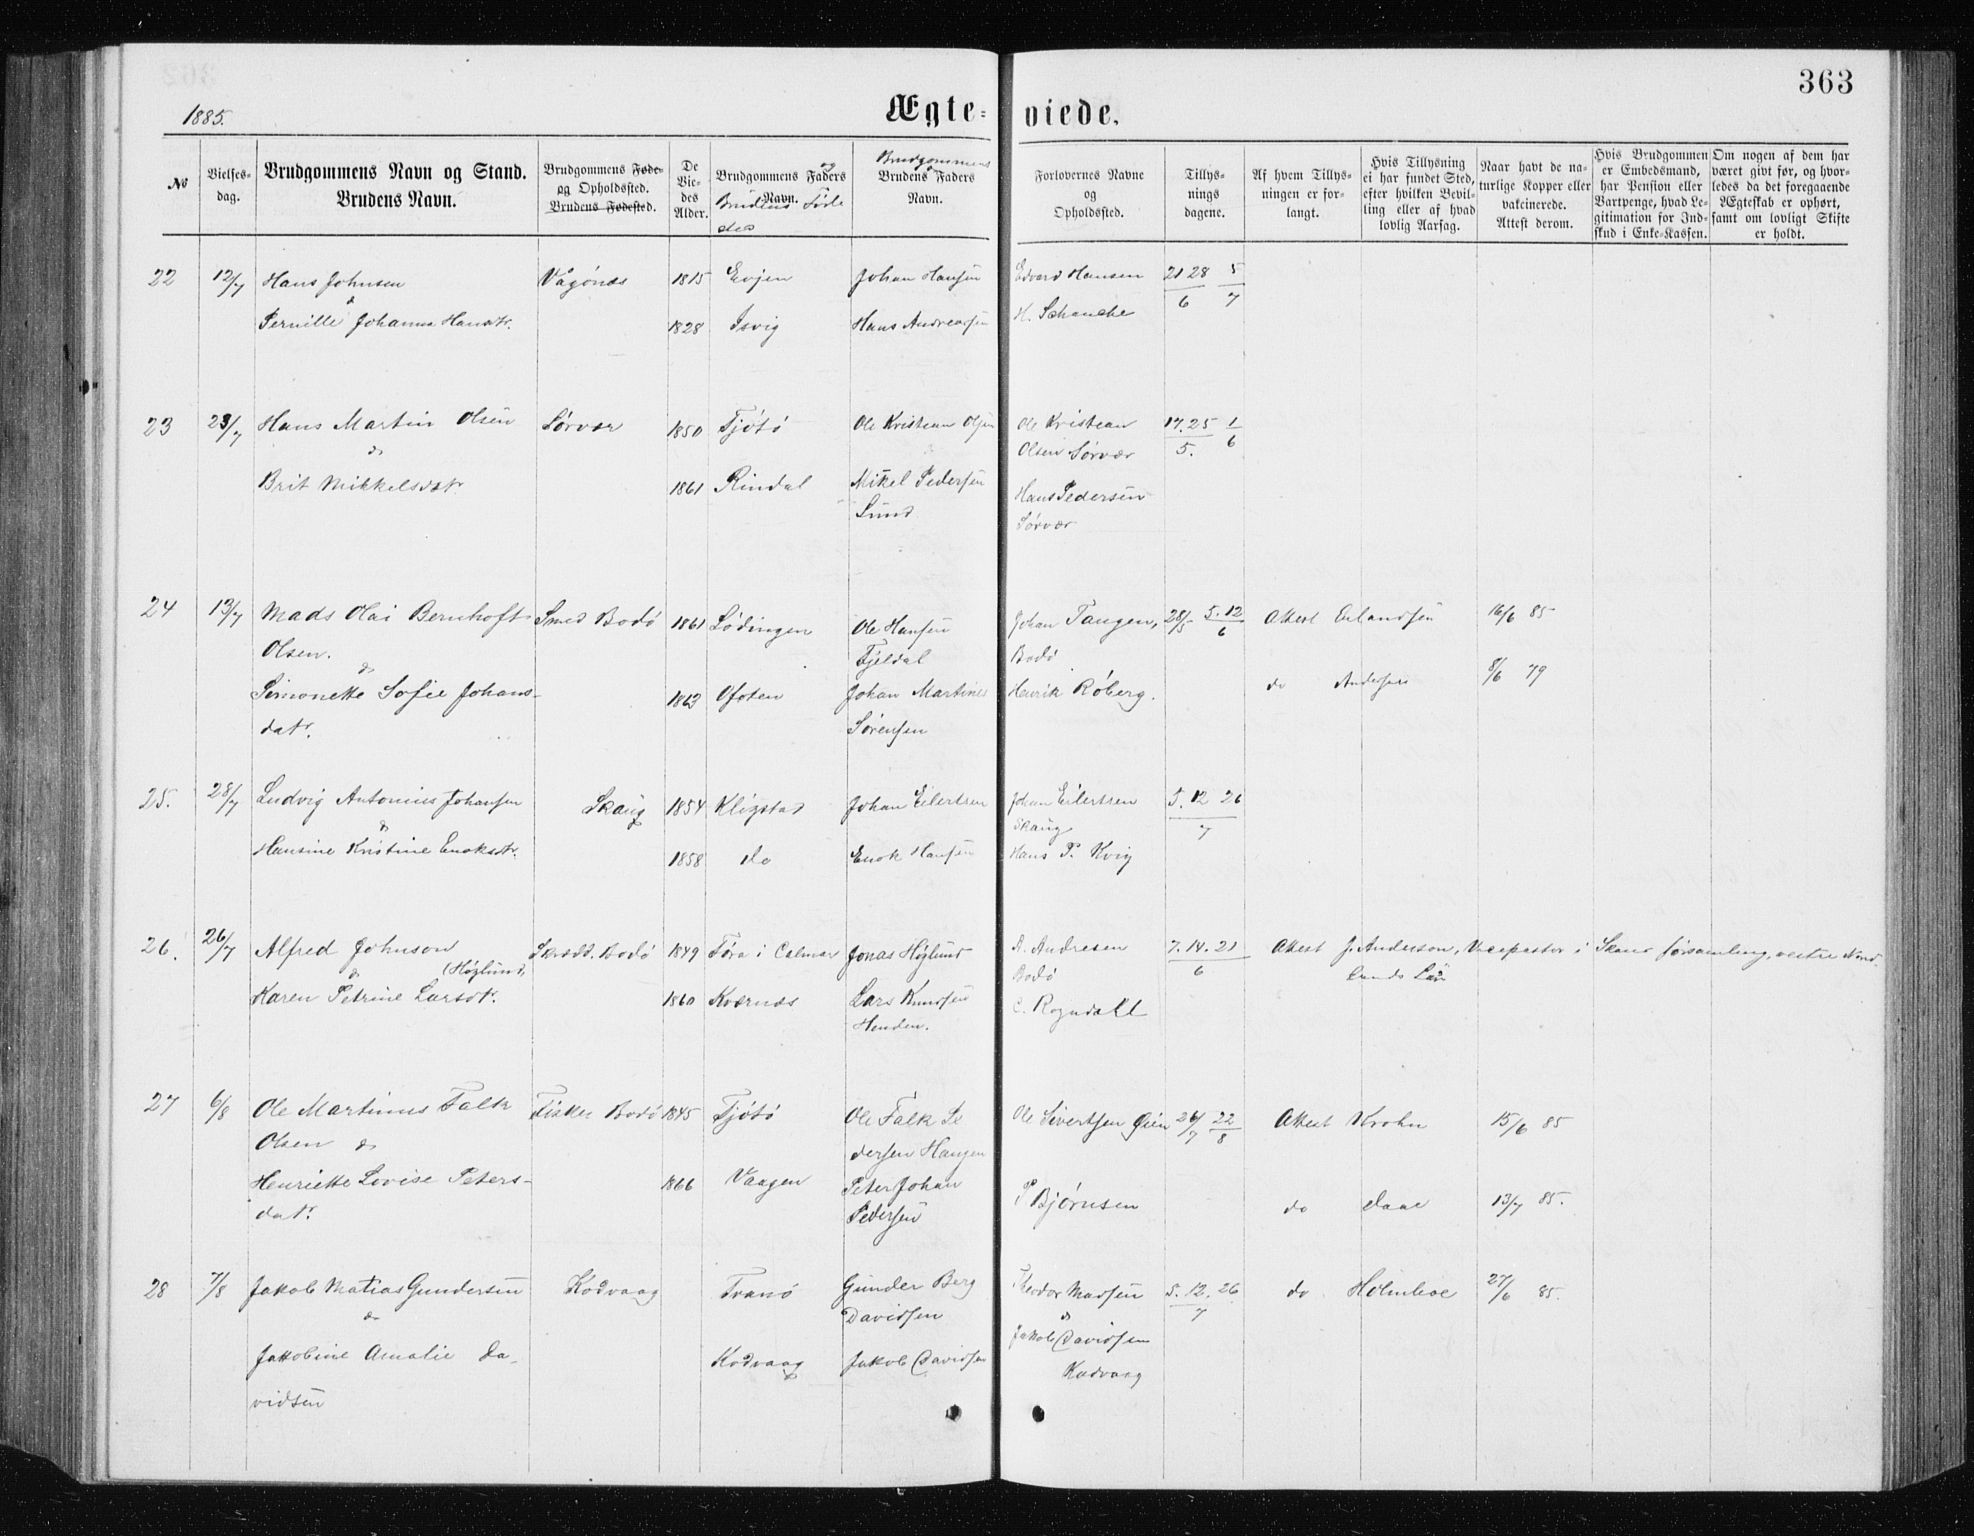 363
1885.
Ægte-
viede.
No
Vielses-
dag.
Brudgommens Navn og Stand.
Brudens Navn.
Brudgommens Føde-
og Opholdssted.
Brudens Fødested.
De
Vie-
des
Alder.
og
Brudgommens Faders
Navn.
Brudens Føde
sted
Brudgommens
Brudens Faders
Navn.
Forlovernes Navne
og
Opholdssted.
Tillys-
nings
dagene.
Af hvem Tillys-
ningen er for-
langt.
Hvis Tillysning
ei har fundet Sted,
efter hvilken Bevil-
ling eller af hvad
lovlig Aarsag.
Naar havt de na-
turlige Kopper eller
vakcinerede.
Attest derom.
Hvis Brudgommen
er Embedsmand,
har Pension eller
Vartpenge, hvad Le-
gitimation for Ind-
skud i Enke-Kassen.
Om nogen af dem har
været givt før, og hvor-
ledes da det foregaaende
Ægteskab er ophørt,
samt om lovligt Skifte
er holdt.
22 12/7 Hans Johnsen Vågönæs 1815 Evjen Johan Hansen Edvard Hansen 21 28 5
&
6 7
Pernille Johanna Hansdtr. 1828 Isvig Hans Andreassen H. Schanche
23 23/7 Hans Martin Olsen Sørvær 1850 Tjötö Ole Kristian Olsen Ole Kristian 17. 25 1
& Olsen Sørvær 5. 6
Brit Mikkelsdatr 1861 Rindal Mikel Pedersen Hans Pedersen
Lund Sørvær
24 13/7 Mads Olai Bernhoft Smed Bodö 1861 Lödingen Ole Hansen Johan Tangen, 28/5 5. 12 Attest Erlandsen 16/6 85
6
Olsen. Fjeldal Bodö
&
Simonette Sofie Johans- 1863 Ofoten Johan Martines Henrik Röberg. do Andersen 8/6 79
datr. Sörensen
25. 28/7 Ludvig Antonius Johansen Skaug 1854 Kligstad Johan Eilertsen Johan Eilertsen 5. 12 26
& Skaug 7
Hansine Kristine Enoksdtr. 1858 do Enok Hansen Hans P. Kvig
26. 26/7 Alfred Johnson Skrædd. Bodö 1849 Töra i Calmar Jonas Höglund A. Andresen 7. 14. 21 Attest J. Anderson, Vicepastor i Skans församling, vestre Nord
& (Höglund) Bodö 6 lands Län
Karen Petrine Larsdtr. 1860 Kværnæs Lars Knudsen C. Rogndall
Henden.
27 6/8 Ole Martinus Falk Fisker Bodö 1845 Tjötö Ole Falk Pe Ole Sivertsen Öien 26/7 22/8 Attest Krohn 15/6 85
Olsen & dersen Haugen
Henriette Lovise Peters- 1866 Vaagen Peter Johan P Björnsen do Daae 13/7 85.
datr. Pedersen
28 7/8 Jakob Matias Gundersen Kodvaag Tranö Gunder Berg Theodor Madsen 5. 12. 26 do Holmboe 27/6 85.
& Davidsen & 7
Jakobine Amalie Da- Kodvaag Jakob Davidsen Jakob Davidsen
vidsen Kodvaag